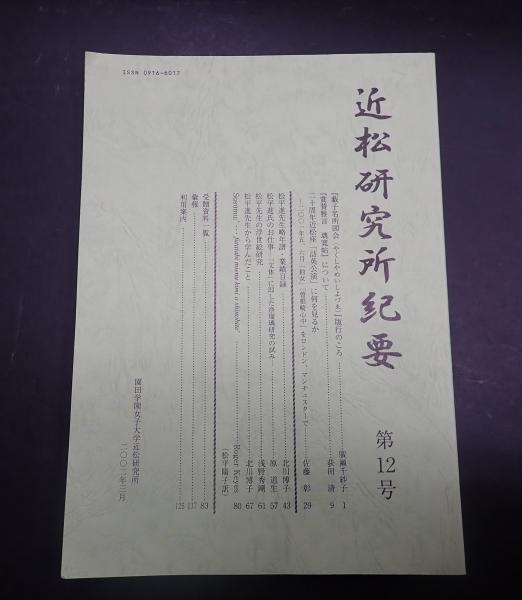 ISSN 0916-6017
近松研究所紀要
第12号
『戯子名所図会（やくしやめいしよづゑ）』版行のころ……廣瀬千紗子 1
『賞賛雅言 璃寛帖』について……荻田 清 9
二十周年近松座「訪英公演」に何を見るか
―二〇〇一年五、六月「曽根崎心中」をロンドン、マンチェスターで……佐藤 彰 29
松平進先生略年譜・業績目録……北川博子 43
松平進氏のお仕事―「文体」に即した浄瑠璃研究の試み……原 道生 57
松平先生の浮世絵研究……浅野秀剛 61
松平進先生から学んだこと……北川博子 67
Roger Keyes 80
（松平陽子訳）
受贈資料一覧……83
彙報……117
利用案内……125
園田学園女子大学近松研究所
二〇〇二年三月